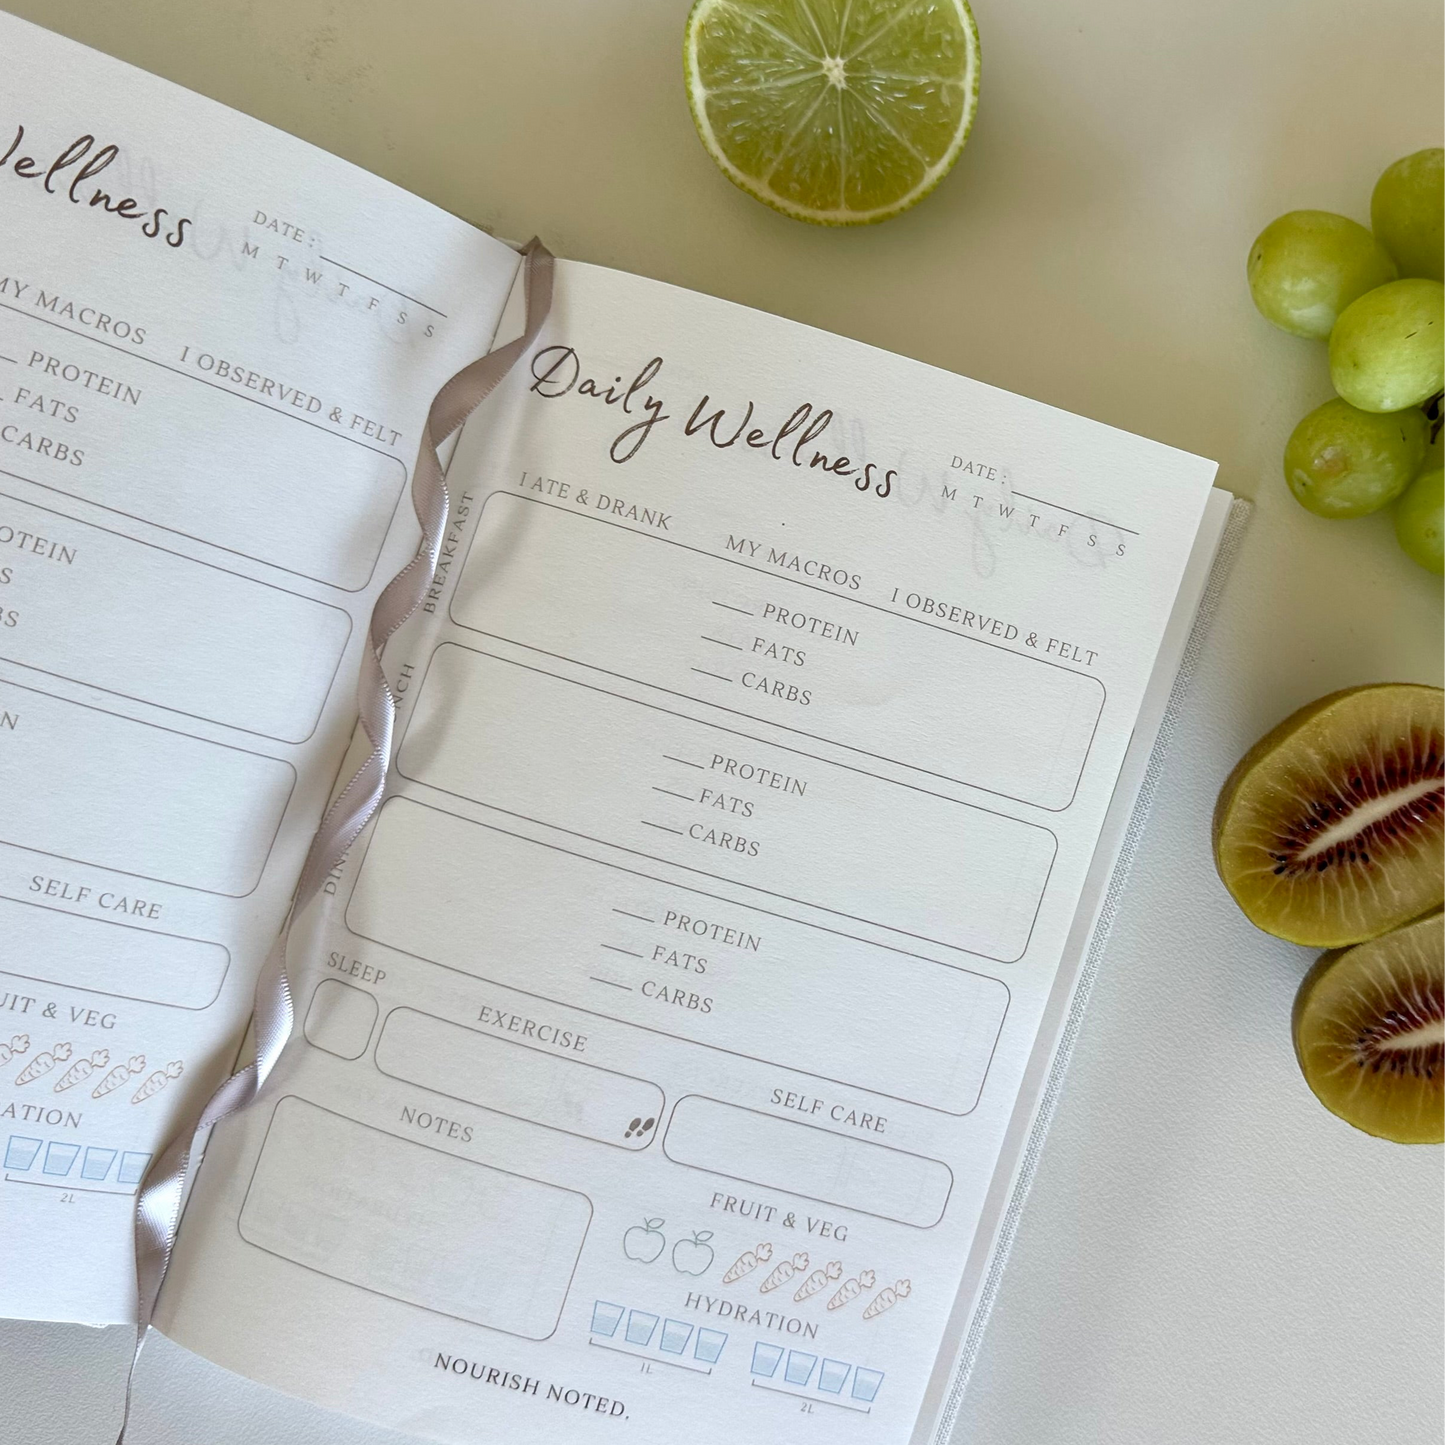 Wellness
DATE:
M T W T F S S
MY MACROS I OBSERVED & FELT
PROTEIN
FATS
CARBS
SELF CARE
& VEG
2L
Daily Wellness
DATE:
M T W T F S S
I ATE & DRANK MY MACROS I OBSERVED & FELT
BREAKFAST
PROTEIN
FATS
CARBS
PROTEIN
FATS
CARBS
PROTEIN
FATS
CARBS
SLEEP
EXERCISE
SELF CARE
NOTES
FRUIT & VEG
HYDRATION
1L
2L
NOURISH NOTED.